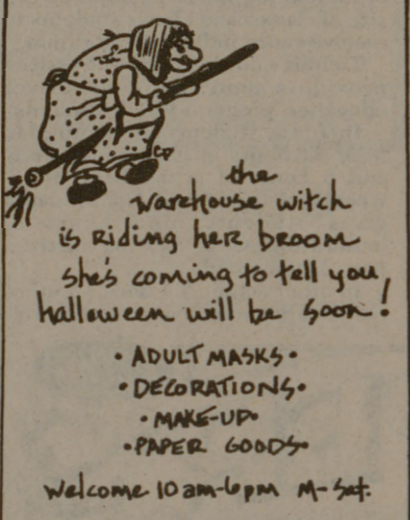 the
warehouse witch
is riding her broom
she's coming to tell you
halloween will be soon!
• ADULT MASKS •
• DECORATIONS •
• MAKE-UP •
• PAPER GOODS •
Welcome 10am-6pm M- Sat.